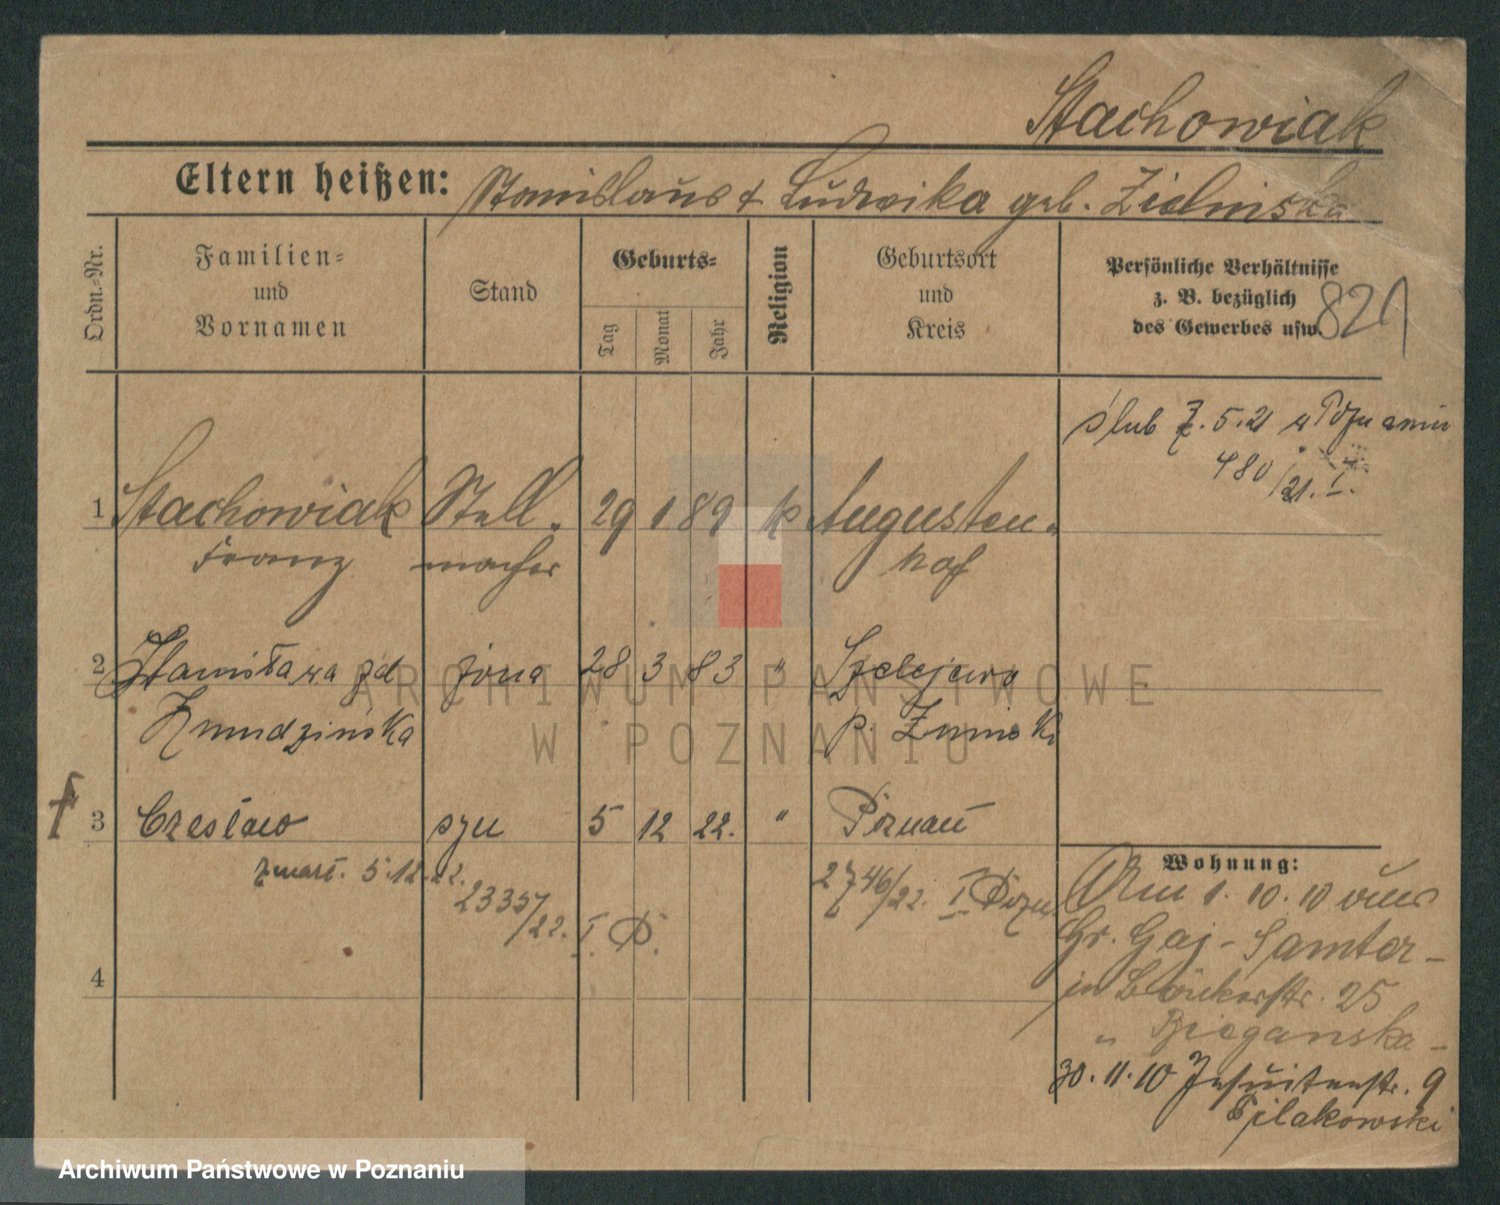 Stachowiak
Eltern heißen: Stanislaus & Ludwika geb. Zielniska
Ordn.-Nr.
Familien-
und
Vornamen
Stand
Geburts-
Tag
Monat
Jahr
Religion
Geburtsort
und
Kreis
Persönliche Verhältnisse
z. B. bezüglich
des Gewerbes usw.
821
ślub 7.5.21 w Poznaniu
480/21. I.
1 Stachowiak Stell- 29 1 89 k Augusten-
Franz macher hof
2 Stanisława żona 28 3 83 " Szelejewo
Żmudzińska p. Żniński
3 Czesław syn 5 12 22. " Poznań
zmarł. 5.12.22. 2335/22. I P.
2746/22. I Pozn.
4
Wohnung:
Am 1. 10. 10 aus
Gr. Gaj - Samter -
in Bäckerstr. 25
" Biegańska -
30. 11. 10 Jesuitenstr. 9
Pilakowski
ARCHIWUM PAŃSTWOWE
W POZNANIU
Archiwum Państwowe w Poznaniu